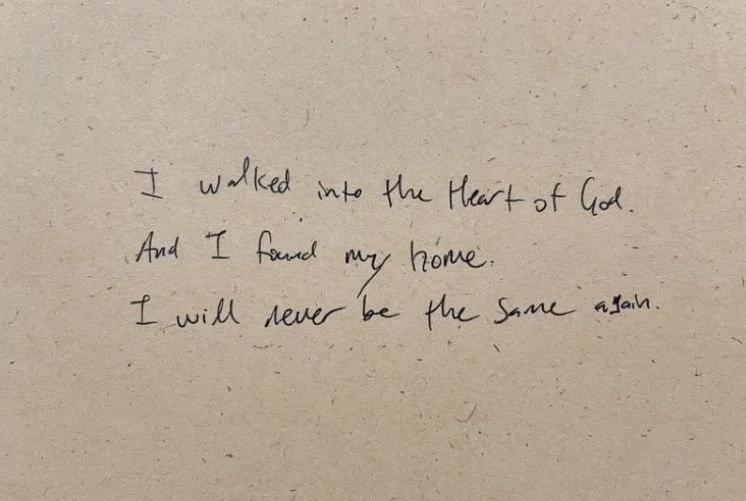 I walked into the Heart of God.
And I found my home.
I will never be the same again.